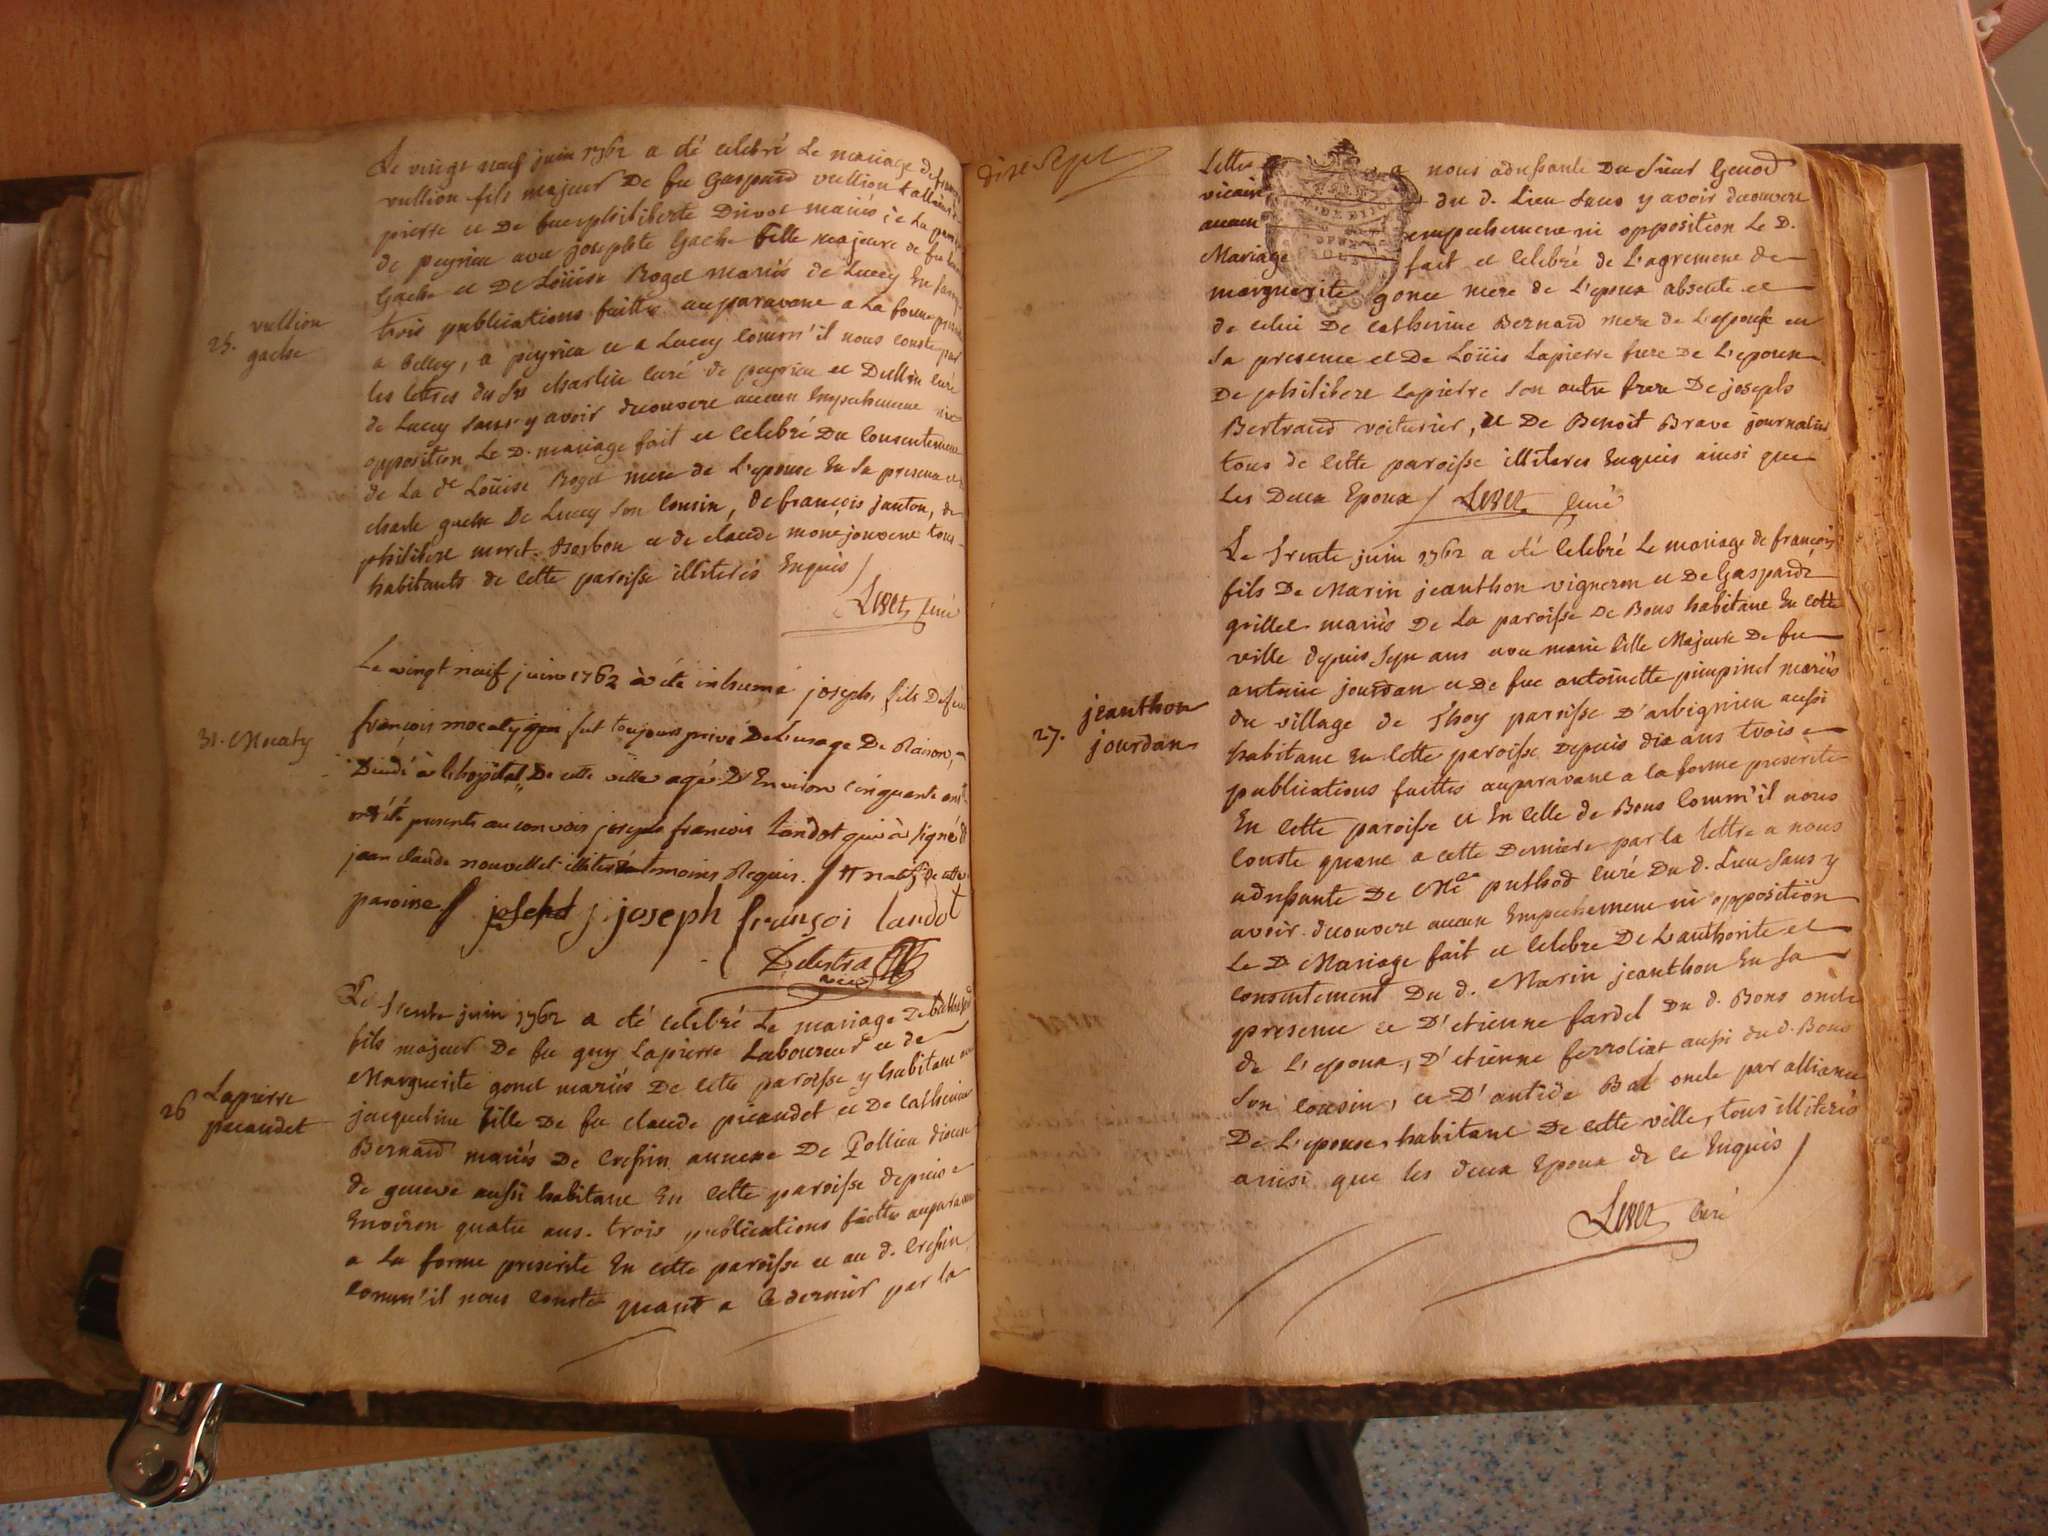 Le vingt neuf juin 1762 a été celebré Le mariage de
vullion fils majeur De feu Gaspard vullion
pierre et De feue philiberte mariés de La
de peyrieu avec josephte Gache fille majeure de feu
Gache et De Loüise Roget mariés de Lucey En
trois publications faittes auparavant a La forme
a Belley, a peyrieu et a Lucey Comm'il nous conste par
les lettres du Sr charlin curé de peyrieu et Dullin curé
de Lucey sans y avoir decouvert aucun Empechement ni
opposition Le D. mariage fait et celebré Du Consentement
de La de Loüise Roget mere de L'epouse En sa presence et
charle gache De Lucey son Cousin, de françois janton, de
philibert moret et de claude tous
habitants de cette paroisse illiterés Enquis /
Levet curé
vullion
25. gache
Le vingt neuf juin 1762 à été inhumé joseph fils De feu
françois mocaty qui fut toujours privé De L'usage De Raison,
Décédé à l'hopital De cette ville agé D'Environ cinquante ans
ont été presents au convois joseph françois Landot qui à signé et
jean claude nouvellet illiteré temoins Requis. / natif de cette
paroisse //
31. Mocaty
joseph françoi landot
Delestra
vic
Le trente juin 1762 a été celebré Le mariage De
fils majeur De feu guy Lapierre Laboureur et de
Marguerite gonet mariés De cette paroisse y habitant avec
jacqueline fille De feu claude picaudet et De Catherine
Bernard mariés De Cressin annexe De Pollieu diocese
de geneve aussi habitant En cette paroisse depuis
Environ quatre ans. trois publications faittes auparavant
a La forme prescrite En cette paroisse et au d. Cressin
Comm'il nous Conste quant a Ce dernier par la
26 Lapierre
picaudet
dixe sept
Lettre a nous adressante Du Sieur Genod
vicaire du d. Lieu sans y avoir decouvert
aucun empechement ni opposition Le D.
Mariage fait et Celebré de L'agrement de
marguerite gonet mere de L'epoux absente et
de celui De Catherine Bernard mere de L'epouse en
sa presence et De Loüis Lapierre frere De L'epoux
De philibert Lapierre son autre frere De joseph
Bertrand voiturier, et De Benoit Brave journalier
tous de cette paroisse illiteres Enquis ainsi que
Les Deux Epoux / Levet curé
Le trente juin 1762 a été Celebré Le mariage de françois
fils De Marin jeanthon vigneron et De Gasparde
grillet mariés De La paroisse De Bons habitant En cette
ville depuis sept ans avec marie fille Majeure De feu
antoine jourdan et De feue antoinette pinpinel mariés
du village de Thoy paroisse D'arbignieu aussi
habitant En cette paroisse depuis dix ans trois
publications faittes auparavant a la forme prescrite
En cette paroisse et En celle de Bons Comm'il nous
Conste quant a cette Derniere par la lettre a nous
adressante De Mre puthod curé Du d. Lieu sans y
avoir decouvert aucun Empechement ni opposition
Le D. Mariage fait et Celebre De L'authorite et
Consentement Du d. Marin jeanthon En sa
presence et D'etienne fardel Du d. Bons oncle
de L'epoux, D'etienne ferroliat aussi du d. Bons
son Cousin, et D'antide Bal oncle par alliance
De L'epouse habitant De cette ville, tous illiterés
ainsi que les deux Epoux de ce Enquis /
Levet Curé
jeanthon
27. jourdan